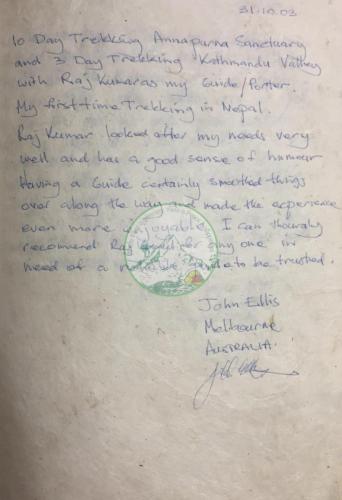 31.10.03
10 Day Trekking Annapurna Sanctuary
and 3 Day Trekking Kathmandu Valley
with Raj Kumar as my Guide/Porter.
My first time Trekking in Nepal.
Raj Kumar looked after my needs very
well and has a good sense of humour
Having a Guide certainly smoothed things
over along the way and made the experience
even more enjoyable. I can
recommend Raj Kumar for any one in
need of a to be trusted.
John Ellis
Melbourne
AUSTRALIA.